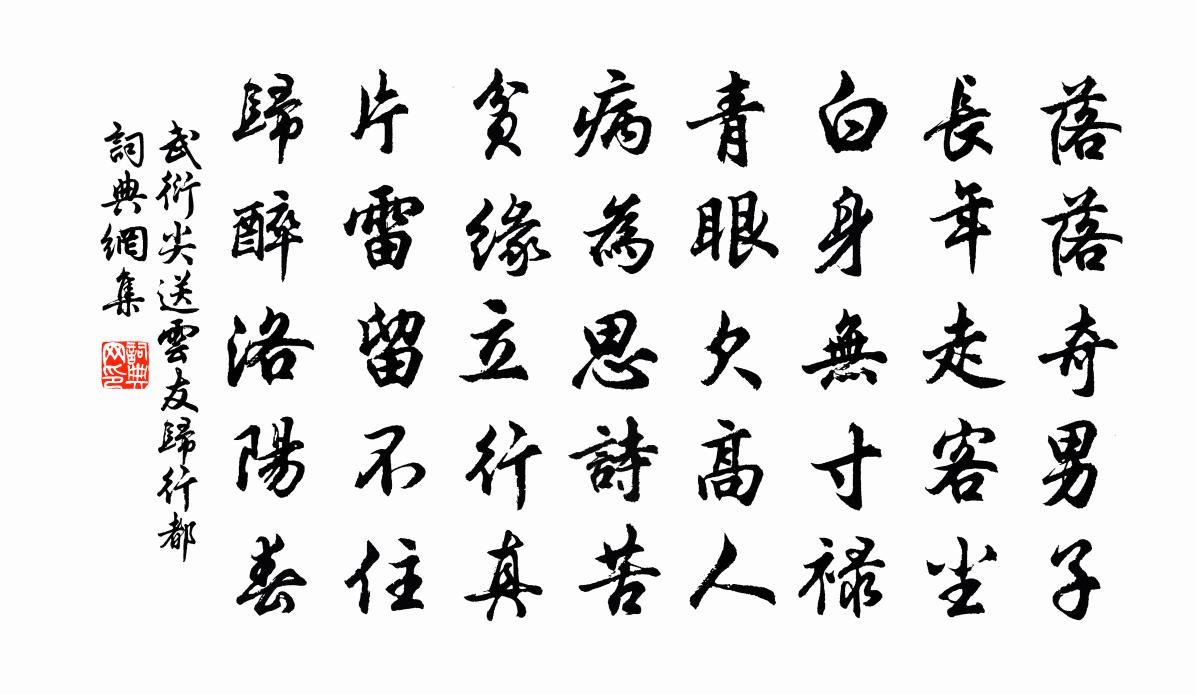 落落奇男子
長年走客尘
白身無寸禄
青眼欠高人
病為思詩苦
貧緣立行真
片雷留不住
歸醉洛陽春
武衍尖送雲友歸行都
詞典網集
詞典
网印